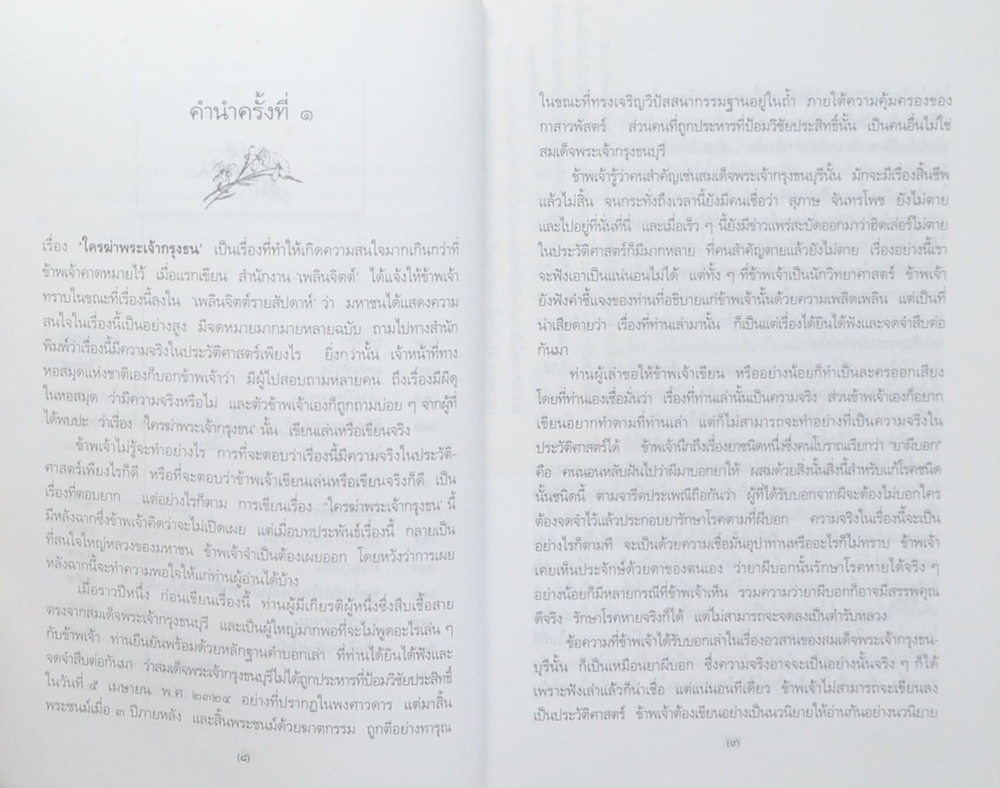 คำนำครั้งที่ ๑
เรื่อง 'ใครฆ่าพระเจ้ากรุงธน' เป็นเรื่องที่ทำให้เกิดความสนใจมากเกินกว่าที่
ข้าพเจ้าคาดหมายไว้ เมื่อแรกเขียน สำนักงาน 'เพลินจิตต์' ได้แจ้งให้ข้าพเจ้า
ทราบในขณะที่เรื่องนี้ลงใน 'เพลินจิตต์รายสัปดาห์' ว่า มหาชนได้แสดงความ
สนใจในเรื่องนี้เป็นอย่างสูง มีจดหมายมากมายหลายฉบับ ถามไปทางสำนัก
พิมพ์ว่าเรื่องนี้มีความจริงในประวัติศาสตร์เพียงไร ยิ่งกว่านั้น เจ้าหน้าที่ทาง
หอสมุดแห่งชาติเองก็บอกข้าพเจ้าว่า มีผู้ไปสอบถามหลายคน ถึงเรื่องมีผีดุ
ในหอสมุด ว่ามีความจริงหรือไม่ และตัวข้าพเจ้าเองก็ถูกถามบ่อย ๆ จากผู้ที่
ได้พบปะ ว่าเรื่อง 'ใครฆ่าพระเจ้ากรุงธน' นั้น เขียนเล่นหรือเขียนจริง
ข้าพเจ้าไม่รู้จะทำอย่างไร การที่จะตอบว่าเรื่องนี้มีความจริงในประวัติ-
ศาสตร์เพียงไรก็ดี หรือที่จะตอบว่าข้าพเจ้าเขียนเล่นหรือเขียนจริงก็ดี เป็น
เรื่องที่ตอบยาก แต่อย่างไรก็ตาม การเขียนเรื่อง 'ใครฆ่าพระเจ้ากรุงธน' นี้
มีหลังฉากซึ่งข้าพเจ้าคิดว่าจะไม่เปิดเผย แต่เมื่อบทประพันธ์เรื่องนี้ กลายเป็น
ที่สนใจใหญ่หลวงของมหาชน ข้าพเจ้าจำเป็นต้องเผยออก โดยหวังว่าการเผย
หลังฉากนี้จะทำความพอใจให้แก่ท่านผู้อ่านได้บ้าง
เมื่อราวปีหนึ่ง ก่อนเขียนเรื่องนี้ ท่านผู้มีเกียรติผู้หนึ่งซึ่งสืบเชื้อสาย
ตรงจากสมเด็จพระเจ้ากรุงธนบุรี และเป็นผู้ใหญ่มากพอที่จะไม่พูดอะไรเล่น ๆ
กับข้าพเจ้า ท่านยืนยันพร้อมด้วยหลักฐานคำบอกเล่า ที่ท่านได้ยินได้ฟังและ
จดจำสืบต่อกันมา ว่าสมเด็จพระเจ้ากรุงธนบุรีไม่ได้ถูกประหารที่ป้อมวิชัยประสิทธิ์
ในวันที่ ๕ เมษายน พ.ศ. ๒๓๒๔ อย่างที่ปรากฏในพงศาวดาร แต่มาสิ้น
พระชนม์เมื่อ ๓ ปีภายหลัง และสิ้นพระชนม์ด้วยฆาตกรรม ถูกตีอย่างทารุณ
(๘)
ในขณะที่ทรงเจริญวิปัสสนากรรมฐานอยู่ในถ้ำ ภายใต้ความคุ้มครองของ
กาสาวพัสตร์ ส่วนคนที่ถูกประหารที่ป้อมวิชัยประสิทธิ์นั้น เป็นคนอื่นไม่ใช่
สมเด็จพระเจ้ากรุงธนบุรี
ข้าพเจ้ารู้ว่าคนสำคัญเช่นสมเด็จพระเจ้ากรุงธนบุรีนั้น มักจะมีเรื่องสิ้นชีพ
แล้วไม่สิ้น จนกระทั่งถึงเวลานี้ยังมีคนเชื่อว่า สุภาษ จันทรโพช ยังไม่ตาย
และไปอยู่ที่นั่นที่นี่ และเมื่อเร็ว ๆ นี้ยังมีข่าวแพร่สะบัดออกมาว่าฮิตเล่อร์ไม่ตาย
ในประวัติศาสตร์ก็มีมากหลาย ที่คนสำคัญตายแล้วยังไม่ตาย เรื่องอย่างนี้เรา
จะฟังเอาเป็นแน่นอนไม่ได้ แต่ทั้ง ๆ ที่ข้าพเจ้าเป็นนักวิทยาศาสตร์ ข้าพเจ้า
ยังฟังคำชี้แจงของท่านที่อธิบายแก่ข้าพเจ้านั้นด้วยความเพลิดเพลิน แต่เป็นที่
น่าเสียดายว่า เรื่องที่ท่านเล่ามานั้น ก็เป็นแต่เรื่องได้ยินได้ฟังและจดจำสืบต่อ
กันมา
ท่านผู้เล่าขอให้ข้าพเจ้าเขียน หรืออย่างน้อยก็ทำเป็นละครออกเสียง
โดยที่ท่านเองเชื่อมั่นว่า เรื่องที่ท่านเล่านั้นเป็นความจริง ส่วนข้าพเจ้าเองก็อยาก
เขียนอยากทำตามที่ท่านเล่า แต่ก็ไม่สามารถจะทำอย่างที่เป็นความจริงใน
ประวัติศาสตร์ได้ ข้าพเจ้านึกถึงเรื่องยาชนิดหนึ่งซึ่งคนโบราณเรียกว่า "ยาผีบอก"
คือ คนนอนหลับฝันไปว่าผีมาบอกยาให้ ผสมด้วยสิ่งนั้นสิ่งนี้สำหรับแก้โรคชนิด
นั้นชนิดนี้ ตามจารีตประเพณีถือกันว่า ผู้ที่ได้รับบอกจากผีจะต้องไม่บอกใคร
ต้องจดจำไว้แล้วประกอบยารักษาโรคตามที่ผีบอก ความจริงในเรื่องนี้จะเป็น
อย่างไรก็ตามที จะเป็นด้วยความเชื่อมั่นอุปาทานหรืออะไรก็ไม่ทราบ ข้าพเจ้า
เคยเห็นประจักษ์ด้วยตาของตนเอง ว่ายาผีบอกนั้นรักษาโรคหายได้จริง ๆ
อย่างน้อยก็มีหลายกรณีที่ข้าพเจ้าเห็น รวมความว่ายาผีบอกก็อาจมีสรรพคุณ
ดีจริง รักษาโรคหายจริงก็ได้ แต่ไม่สามารถจะจดลงเป็นตำรับหลวง
ข้อความที่ข้าพเจ้าได้รับบอกเล่าในเรื่องอวสานของสมเด็จพระเจ้ากรุงธน-
บุรีนั้น ก็เป็นเหมือนยาผีบอก ซึ่งความจริงอาจจะเป็นอย่างนั้นจริง ๆ ก็ได้
เพราะฟังเล่าแล้วก็น่าเชื่อ แต่แน่นอนทีเดียว ข้าพเจ้าไม่สามารถจะเขียนลง
เป็นประวัติศาสตร์ ข้าพเจ้าต้องเขียนอย่างเป็นนวนิยายให้อ่านกันอย่างนวนิยาย
(๙)